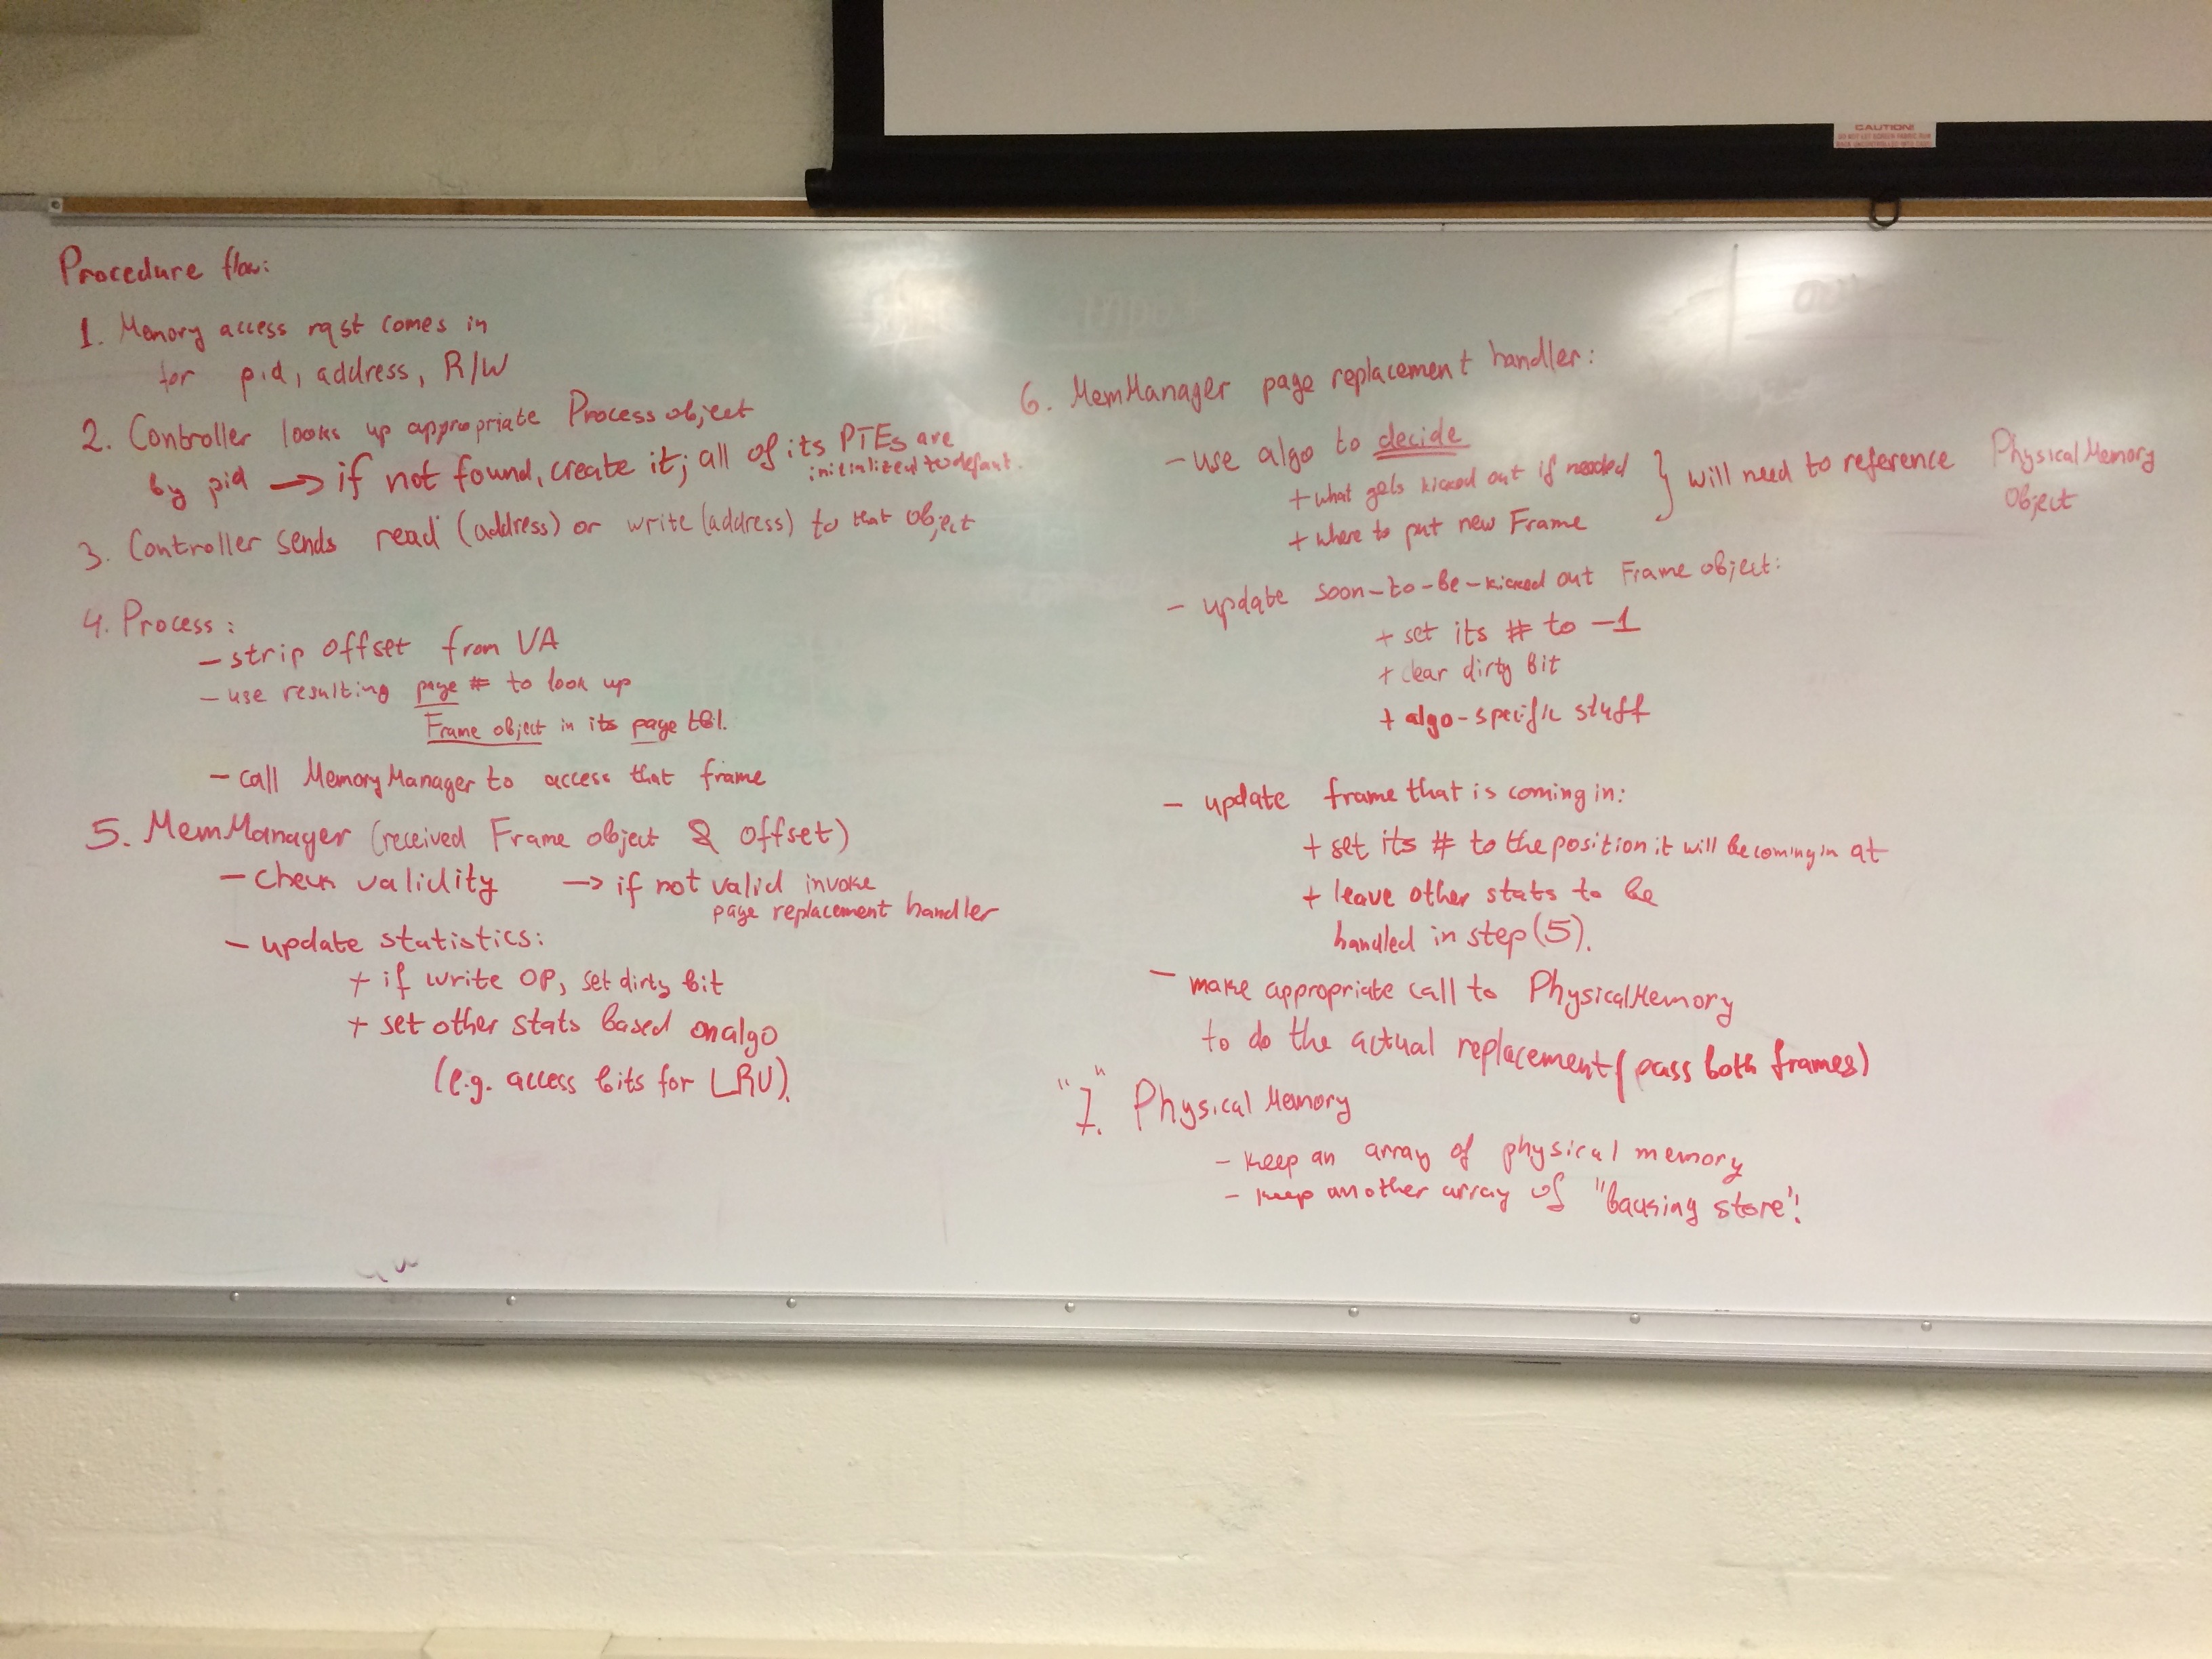 CAUTION!
Procedure flow:
1. Memory access rqst comes in
for pid, address, R/W
2. Controller looks up appropriate Process object
by pid → if not found, create it; all of its PTEs are
initialized to defaut.
3. Controller sends read (address) or write (address) to that object
4. Process:
- strip offset from VA
- use resulting page # to look up
Frame object in its page tbl.
- call MemoryManager to access that frame
5. MemManager (received Frame object & offset)
- check validity → if not valid invoke
page replacement handler
- update statistics:
+ if write OP, set dirty bit
+ set other stats based on algo
(e.g. access bits for LRU).
6. MemManager page replacement handler:
- use algo to decide
+ what gets kicked out if needed
+ where to put new Frame
} will need to reference PhysicalMemory
Object
- update soon-to-be-kicked out Frame object:
+ set its # to -1
+ clear dirty bit
+ algo-specific stuff
- update frame that is coming in:
+ set its # to the position it will be coming in at
+ leave other stats to be
handled in step (5).
- make appropriate call to PhysicalMemory
to do the actual replacement (pass both frames)
"7." Physical Memory
- keep an array of physical memory
- keep another array of "backing store"!